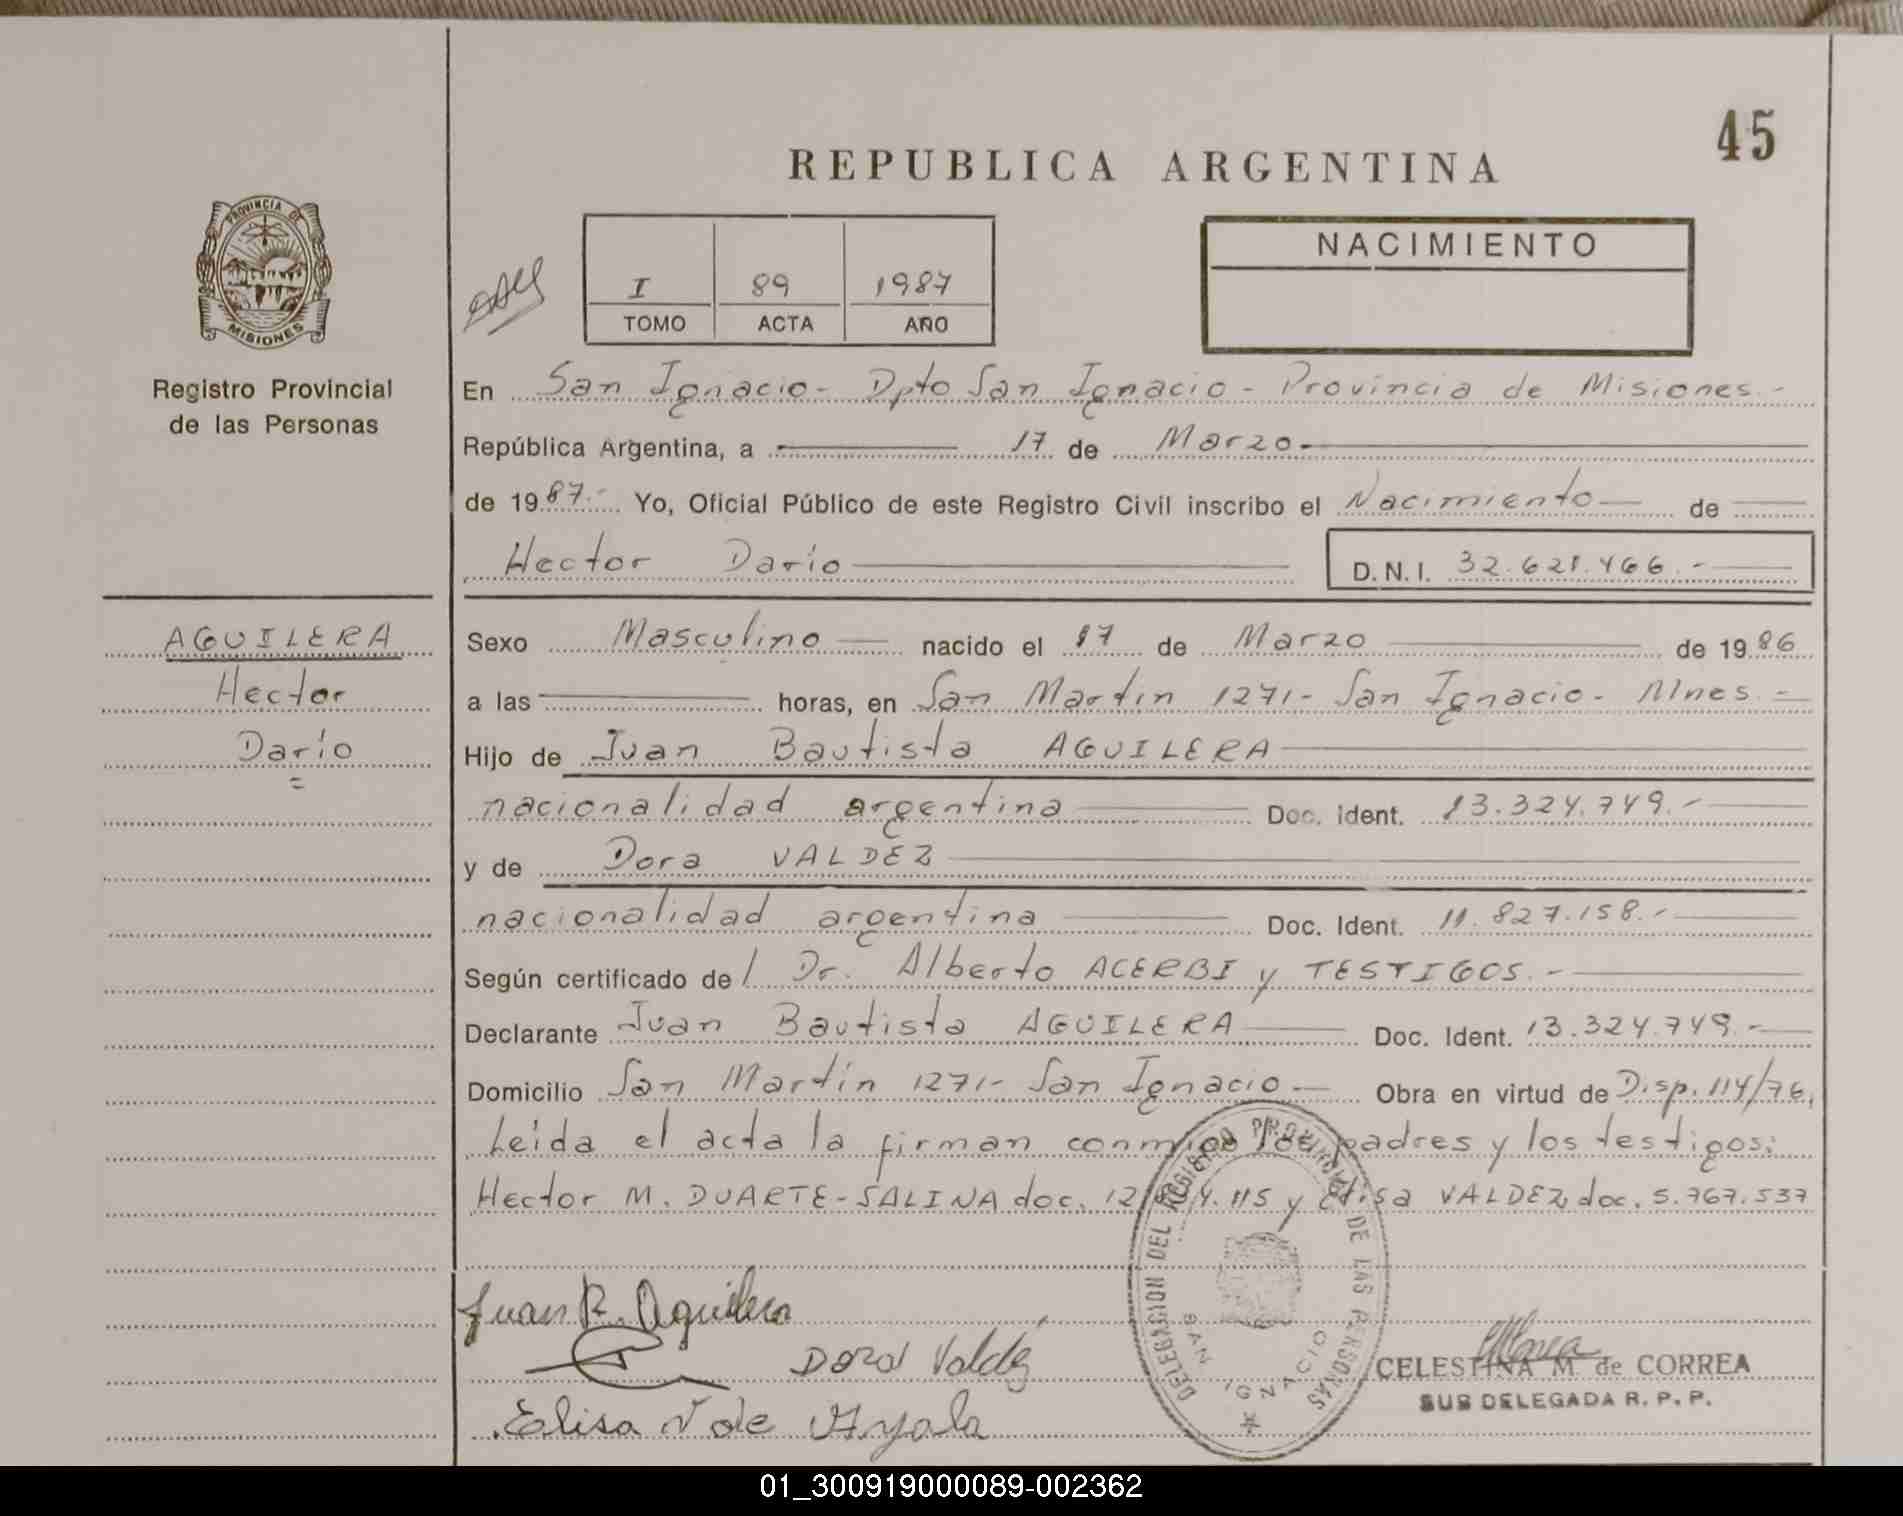 45
REPUBLICA ARGENTINA
PROVINCIA DE
MISIONES
Registro Provincial
de las Personas
I 89 1987
TOMO ACTA AÑO
NACIMIENTO
En San Ignacio - Dpto San Ignacio - Provincia de Misiones.-
República Argentina, a 17 de Marzo.-
de 1987.- Yo, Oficial Público de este Registro Civil inscribo el Nacimiento de
Hector Darío
D.N.I. 32.621.466.-
AGUILERA
Hector
Darío
Sexo Masculino nacido el 17 de Marzo de 1986
a las horas, en San Martin 1271- San Ignacio- Mnes.-
Hijo de Juan Bautista AGUILERA
nacionalidad argentina Doc. Ident. 13.324.749.-
y de Dora VALDEZ
nacionalidad argentina Doc. Ident. 11.827.158.-
Según certificado de/ Dr. Alberto ACERBI y TESTIGOS.-
Declarante Juan Bautista AGUILERA Doc. Ident. 13.324.749.-
Domicilio San Martín 1271- San Ignacio- Obra en virtud de Disp. 114/76,
Leída el acta la firman conmigo los padres y los testigos:
Hector M. DUARTE-SALINA doc. y Elisa VALDEZ, doc. 5.767.537
Juan B. Aguilera
Dora Valdez
Elisa V de Ayala
DELEGACION DEL REGISTRO PROVINCIAL DE LAS PERSONAS
SAN IGNACIO
CELESTINA M. de CORREA
SUB DELEGADA R. P. P.
01_300919000089-002362